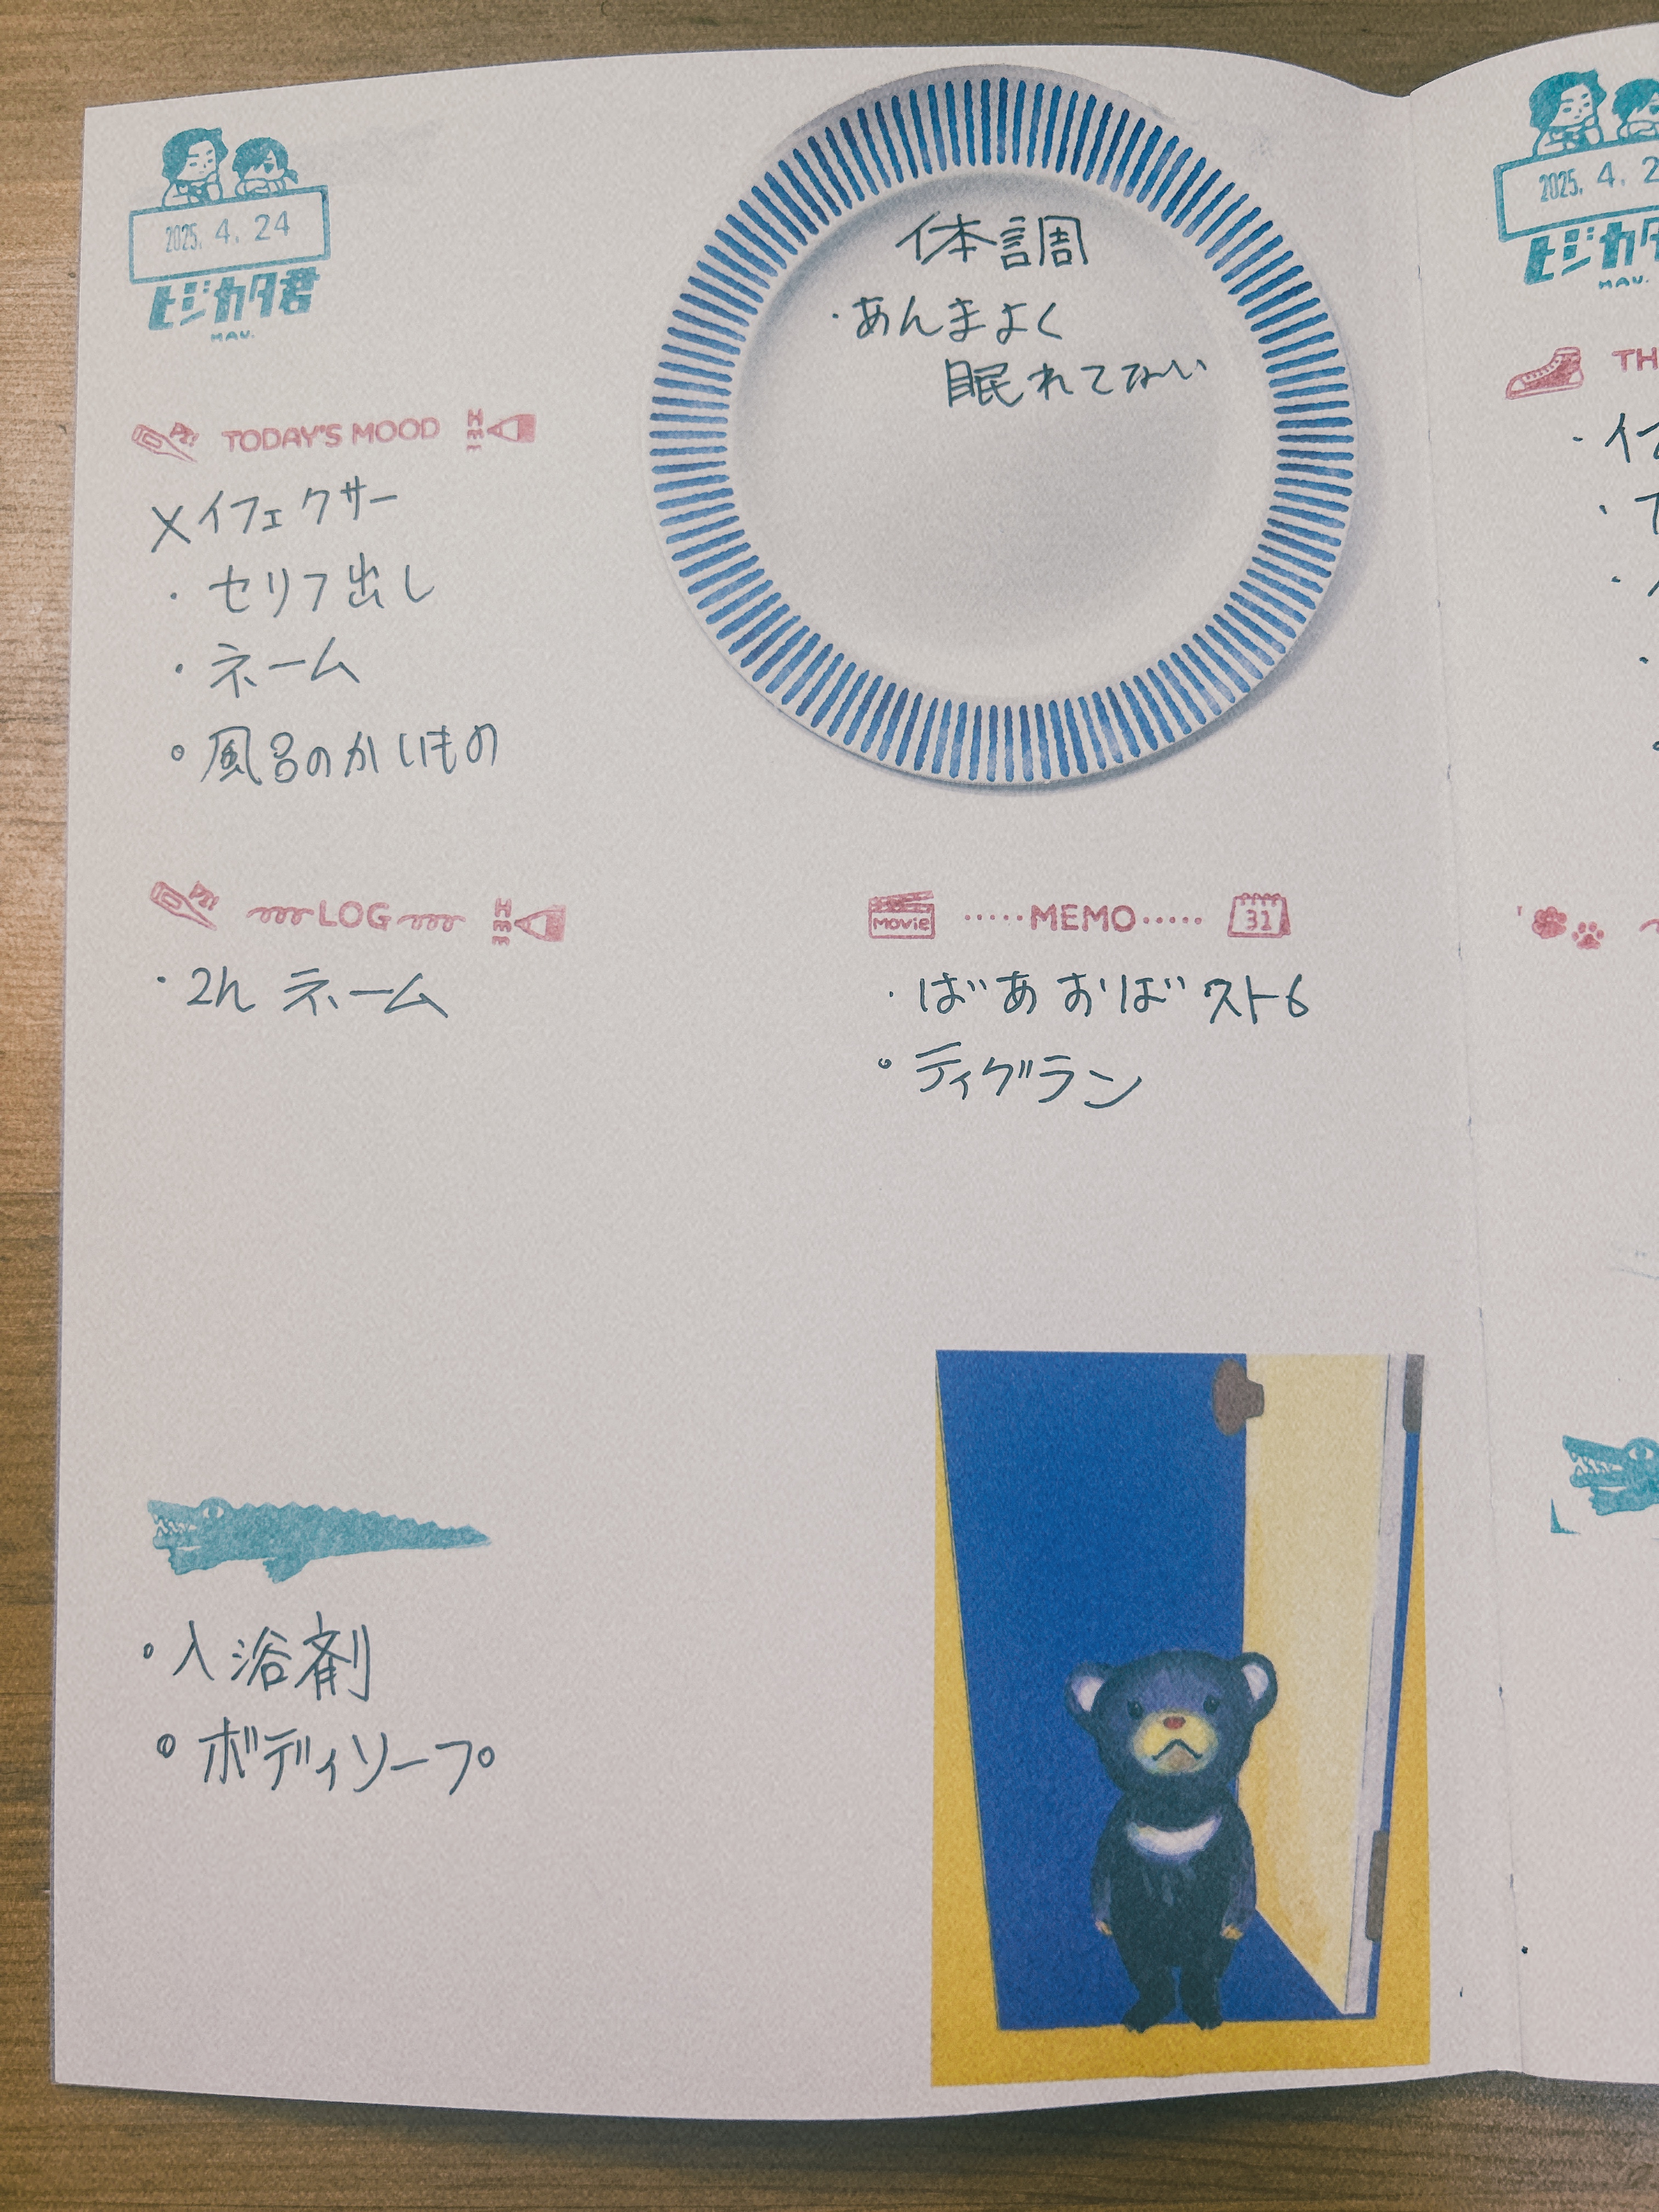 2025. 4. 24
ヒジカタ君
MAU.
体調
・あんまよく
眠れてない
TODAY'S MOOD
×イフェクサー
・セリフ出し
・ネーム
・風呂のかいもの
LOG
・2h ネーム
Movie
MEMO
31
・ばあおばスト6
・ティグラン
・入浴剤
・ボディソープ
2025. 4. 2
ヒジカタ
MAU.
TH